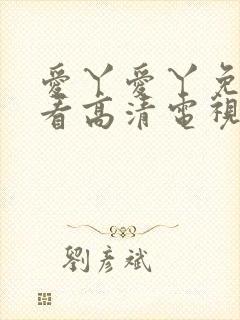 愛丫愛丫免
看高清電視
劉彥斌